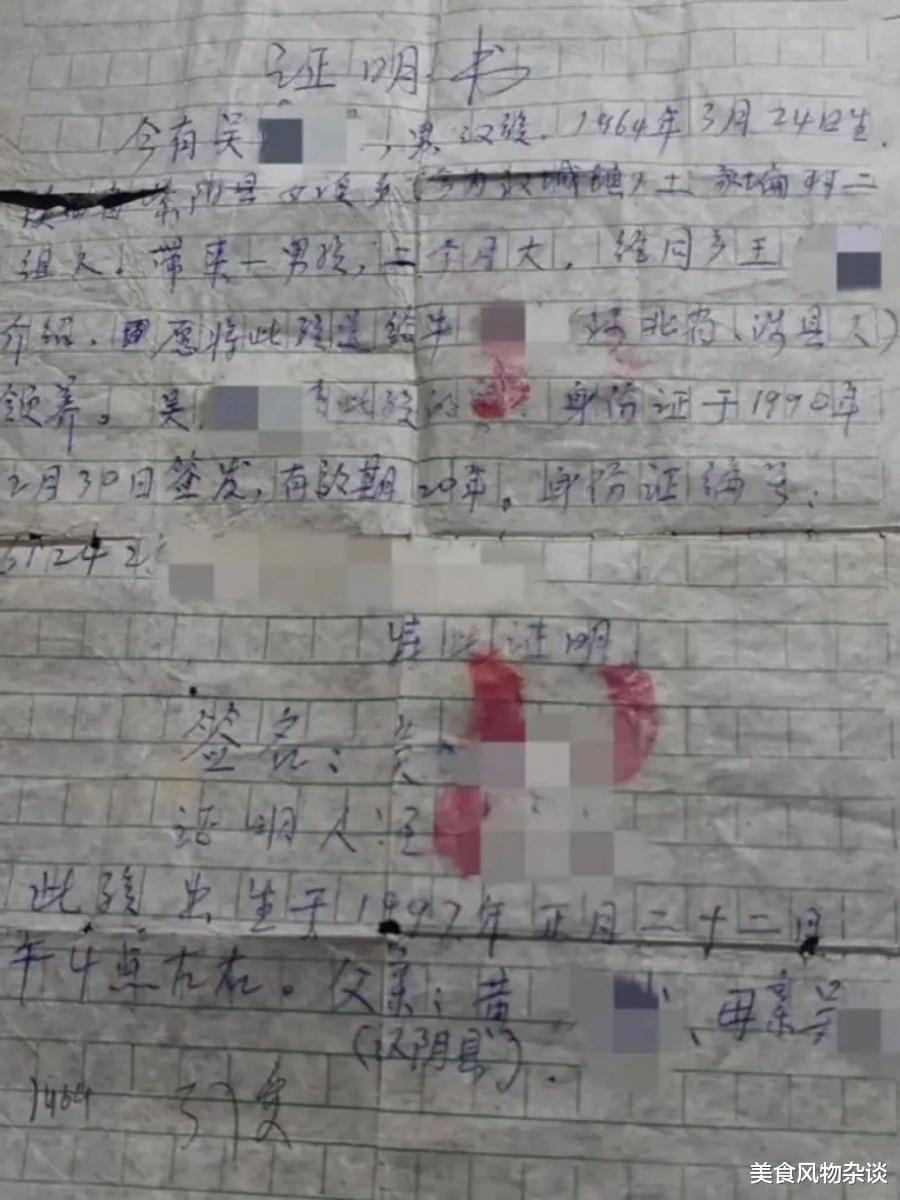 证明书
今有吴 ,男,汉族.1964年3月24日生.
阴县 乡( 城镇)土 村二
组人.带来一男孩,二个月大,经同乡王
介绍. 愿将此孩送给牛 (河北省、涉县人)
领养。吴 此孩 身份证于1990年
2月30日签发,有效期20年。身份证编号:
61242
特此证明
签名:
证明人:王
此孩出生于1997年正月二十二日
午4点左右。父亲:黄 、母亲吴
(汉阴县).
1464
美食风物杂谈